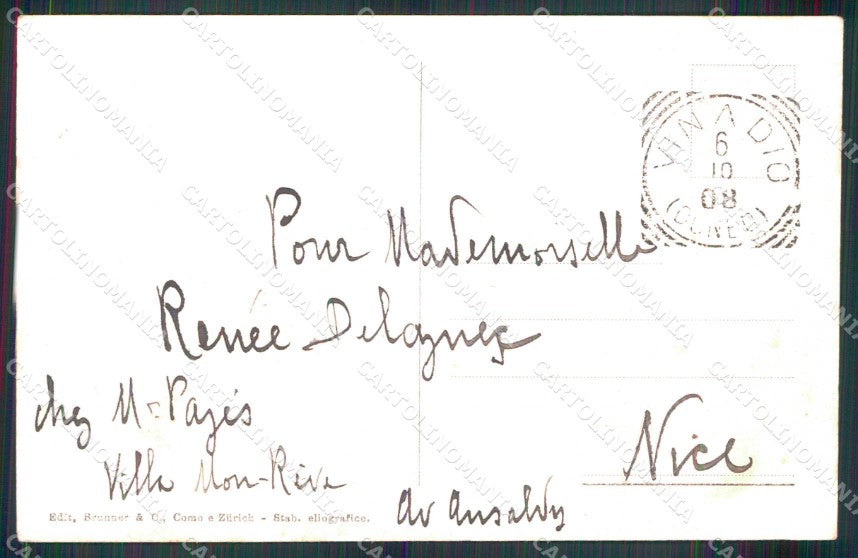 VINADIO
6
10
08
(CUNEO)
Pour Mademoiselle
Renée
chez Mr Pagès
Villa Mon-Rêve
Nice
Av
Edit, Brunner & C., Como e Zürich - Stab. eliografico.
CARTOLINOMANIA